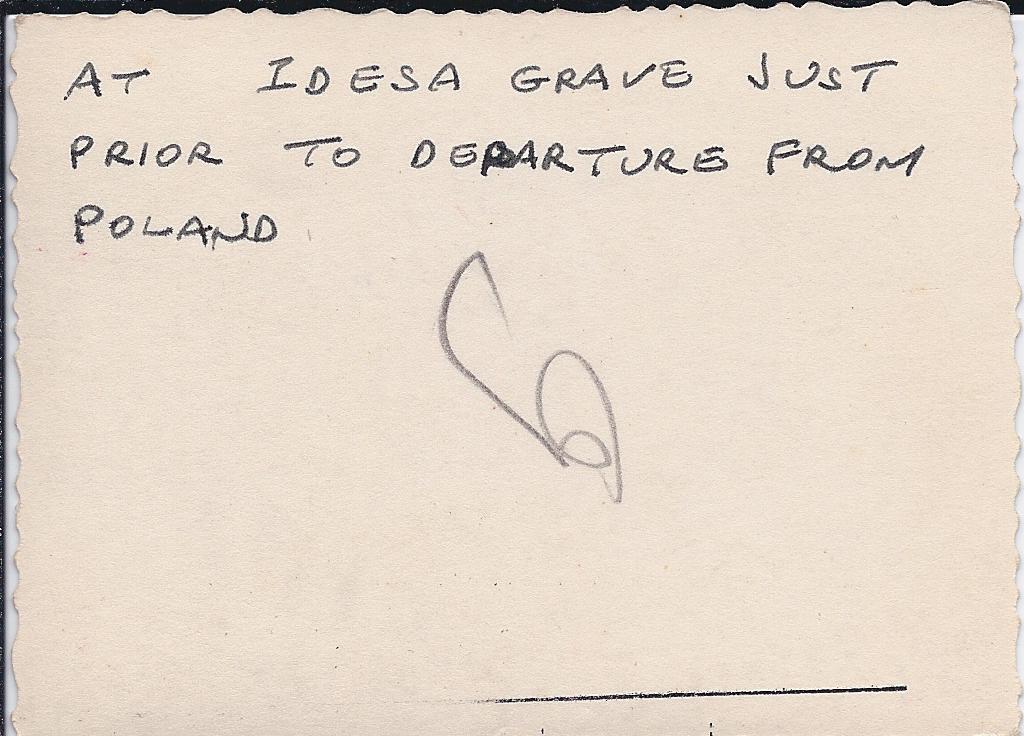 AT IDESA GRAVE JUST
PRIOR TO DEPARTURE FROM
POLAND